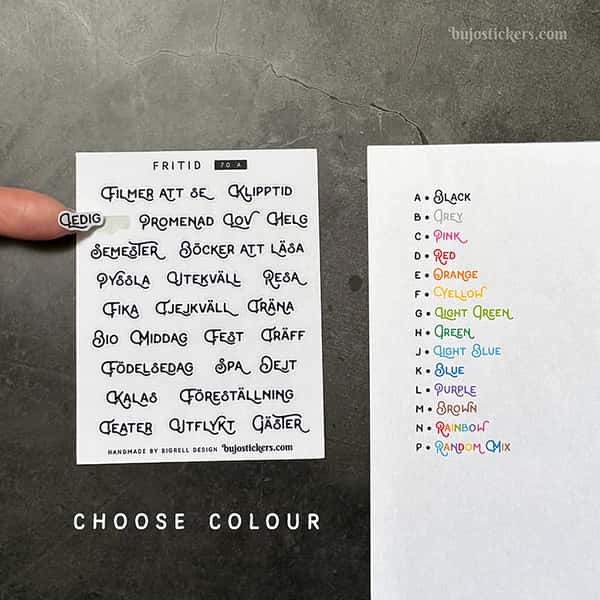 bujostickers.com
FRITID 70 A
FILMER ATT SE KLIPPTID
LEDIG PROMENAD LOV HELG
SEMESTER BÖCKER ATT LÄSA
PYSSLA UTEKVÄLL RESA
FIKA TJEJKVÄLL TRÄNA
BIO MIDDAG FEST TRÄFF
FÖDELSEDAG SPA DEJT
KALAS FÖRESTÄLLNING
TEATER UTFLYKT GÄSTER
HANDMADE BY BIGRELL DESIGN bujostickers.com
CHOOSE COLOUR
A • BLACK
B • GREY
C • PINK
D • RED
E • ORANGE
F • YELLOW
G • LIGHT GREEN
H • GREEN
J • LIGHT BLUE
K • BLUE
L • PURPLE
M • BROWN
N • RAINBOW
P • RANDOM MIX